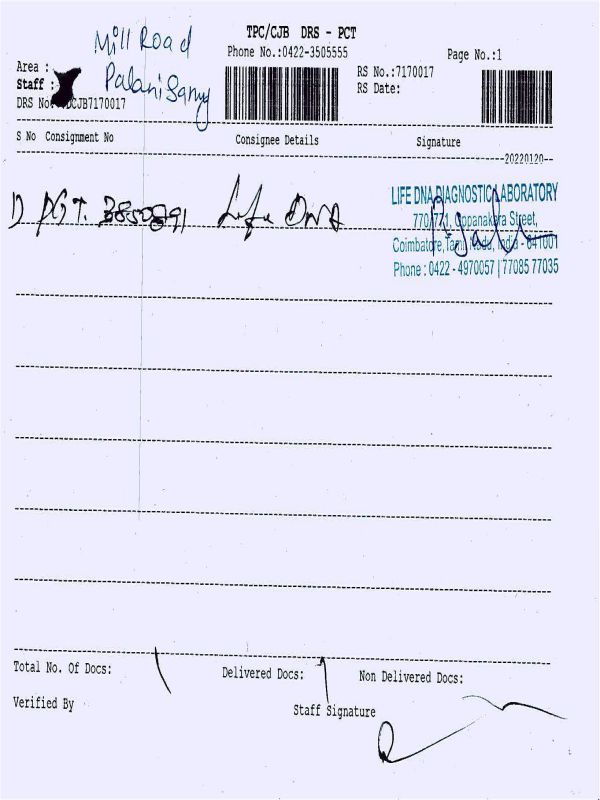 TPC/CJB DRS - PCT
Mill Road
Phone No.:0422-3505555
Page No.:1
Area :
RS No.:7170017
Staff :
Palanisamy
RS Date:
DRS No: CJB7170017
S No Consignment No Consignee Details Signature
20220120
LIFE DNA DIAGNOSTIC LABORATORY
1) 3850891 Life DNA
770/771, Oppanakara Street,
Coimbatore, Tamil Nadu, India - 641001
Phone : 0422 - 4970057 | 77085 77035
Total No. Of Docs: 1 Delivered Docs: 1 Non Delivered Docs:
Verified By Staff Signature